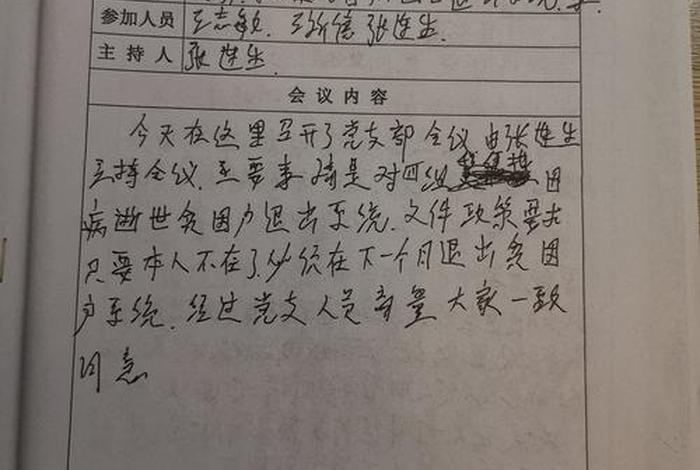 参加人员 王志敏. 王新德 张连生.
主持人 张连生
会议内容
今天在这里召开了党支部会议.由张连生
主持会议.主要事情是对四组 因
病逝世贫困户退出系统.文件政策要求
只要本人不在了.必须在下一个月退出贫困
户系统.经过党支人员商量大家一致
同意